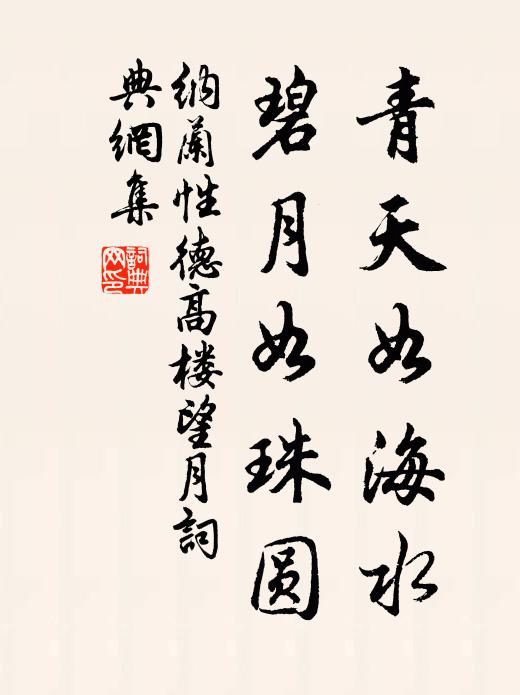 青天如海水
碧月如珠圓
納蘭性德高楼望月詞
典網集
詞典网印